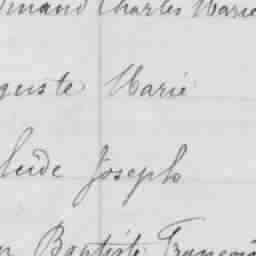 dinand Charles Marie
guste Marie
Joseph
Baptiste François